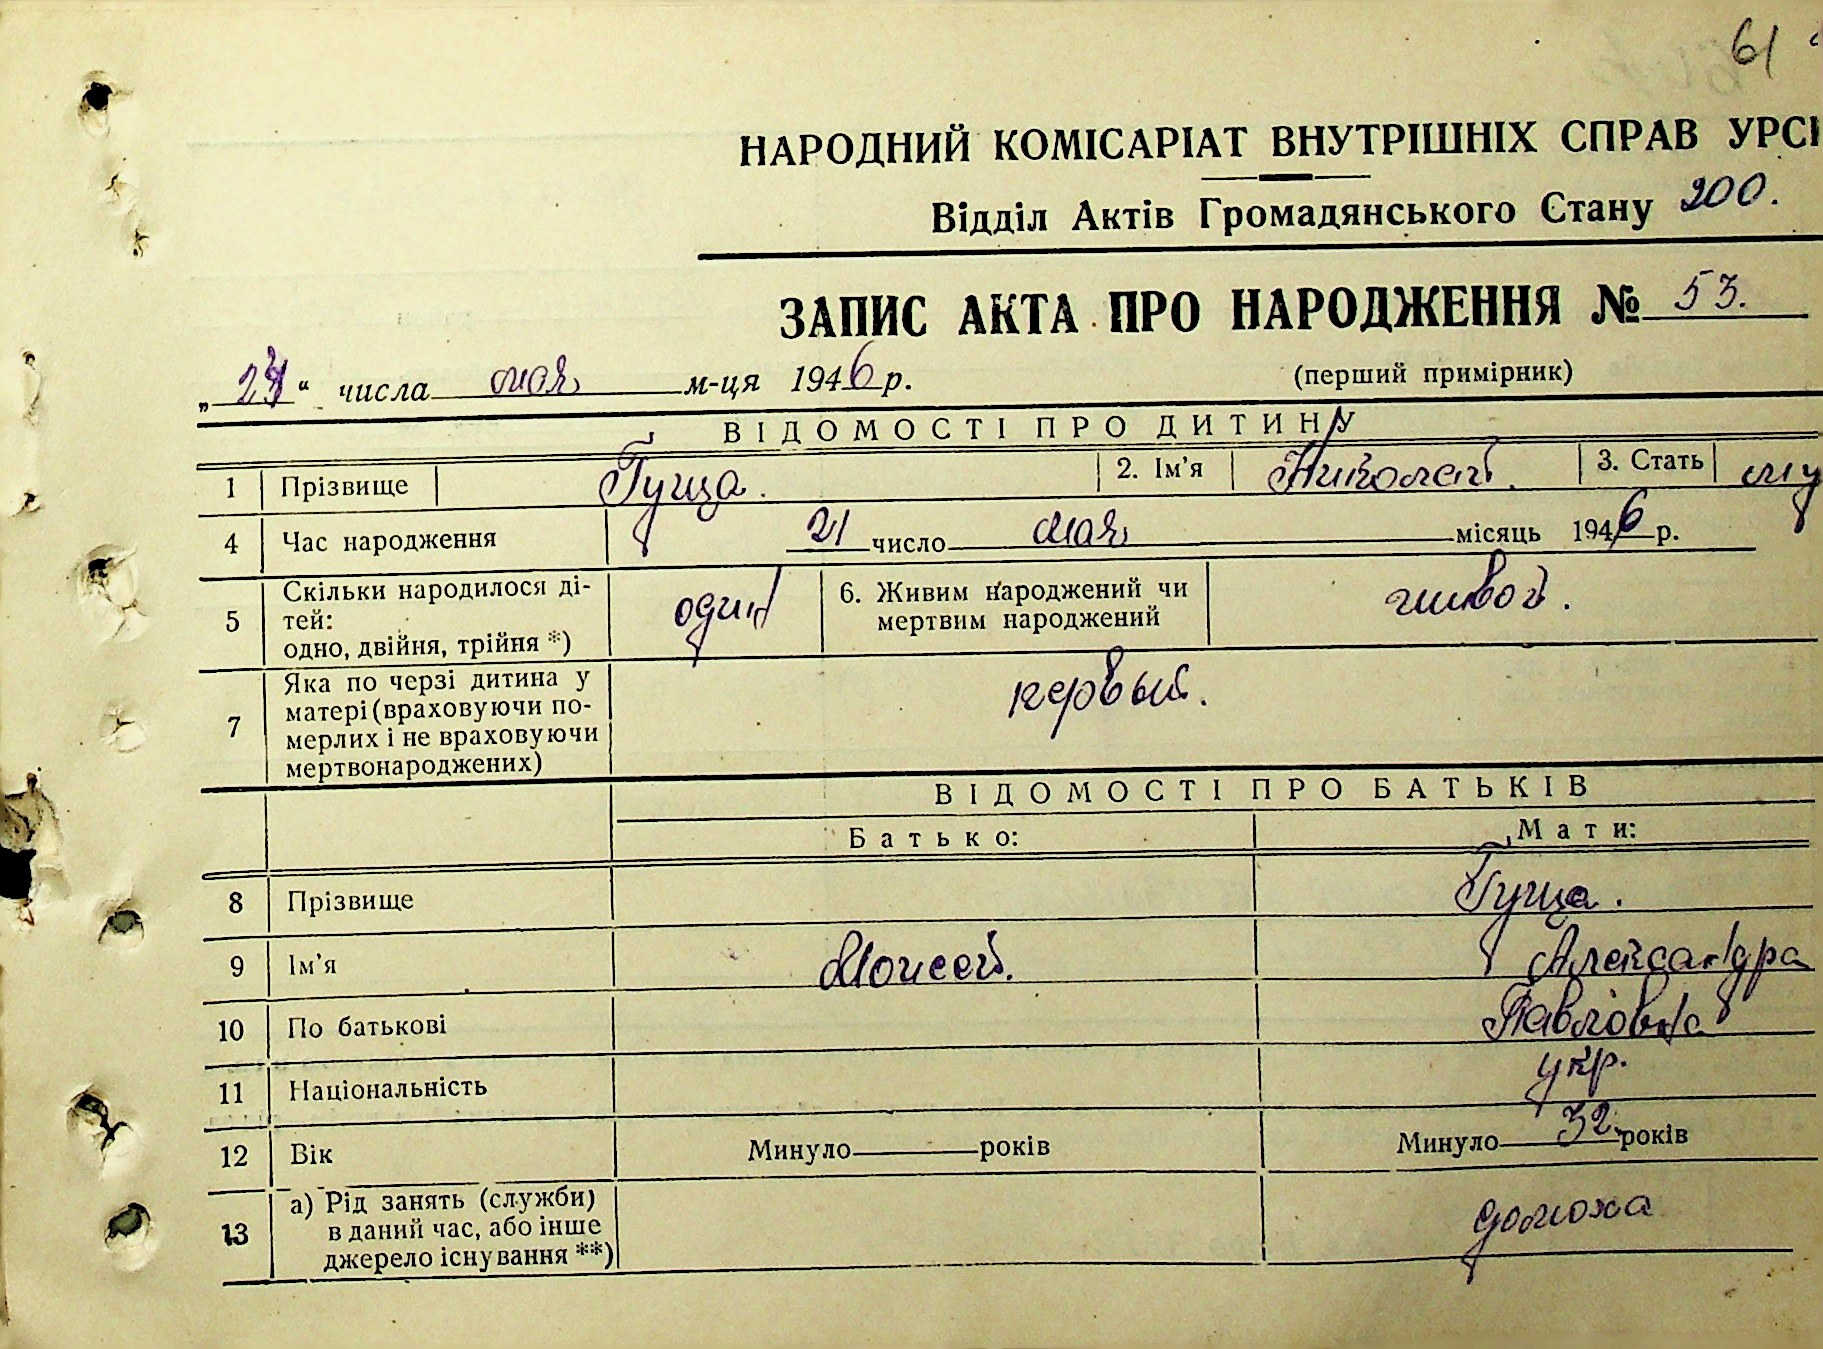 61
НАРОДНИЙ КОМІСАРІАТ ВНУТРІШНІХ СПРАВ УРСР
Відділ Актів Громадянського Стану 200.
ЗАПИС АКТА ПРО НАРОДЖЕННЯ № 53.
„ “ числа мая м-ця 1946 р.
(перший примірник)
ВІДОМОСТІ ПРО ДИТИНУ
1 Прізвище Гуща. 2. Ім’я Николай. 3. Стать му
4 Час народження 21 число мая місяць 1946 р.
5 Скільки народилося ді-
тей:
одно, двійня, трійня *) один
6. Живим народжений чи
мертвим народжений живой.
7 Яка по черзі дитина у
матері (враховуючи по-
мерлих і не враховуючи
мертвонароджених) первый.
ВІДОМОСТІ ПРО БАТЬКІВ
Батько: Мати:
8 Прізвище Гуща.
9 Ім’я Моисей. Александра
10 По батькові Павловна
11 Національність укр.
12 Вік Минуло років Минуло 32 років
13 а) Рід занять (служби)
в даний час, або інше
джерело існування **) домоха